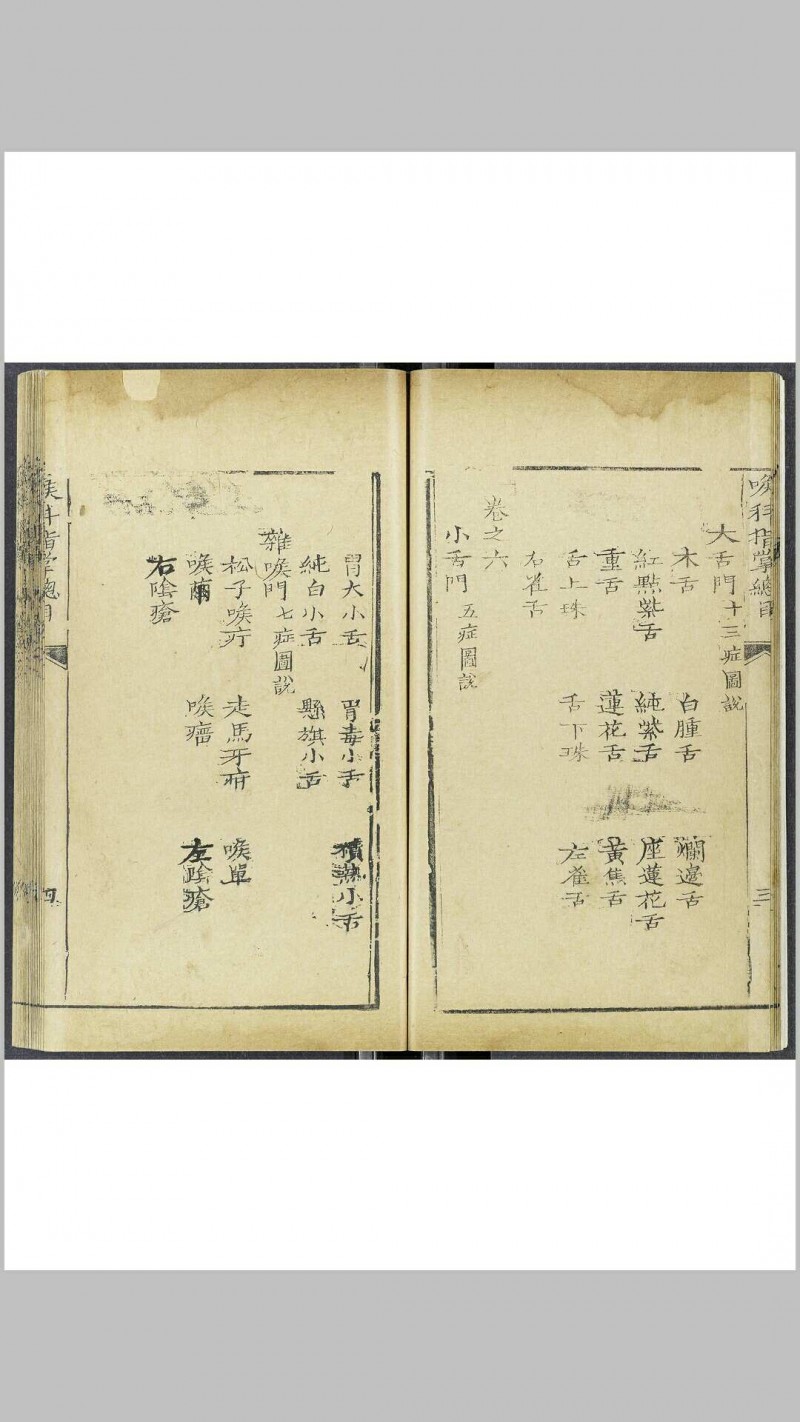 喉科指掌總目
三
大舌門 十三症圖說
木舌 白腫舌 爛邊舌
紅點紫舌 純紫舌 座蓮花舌
重舌 蓮花舌 黃焦舌
舌上珠 舌下珠 左雀舌
右雀舌
卷之六
小舌門 五症圖說
胃大小舌 胃毒小舌 積熱小舌
純白小舌 懸旗小舌
雜喉門 七症圖說
松子喉疔 走馬牙疳 喉單
喉癰 左陰瘡
右陰瘡
喉科指掌總目
四